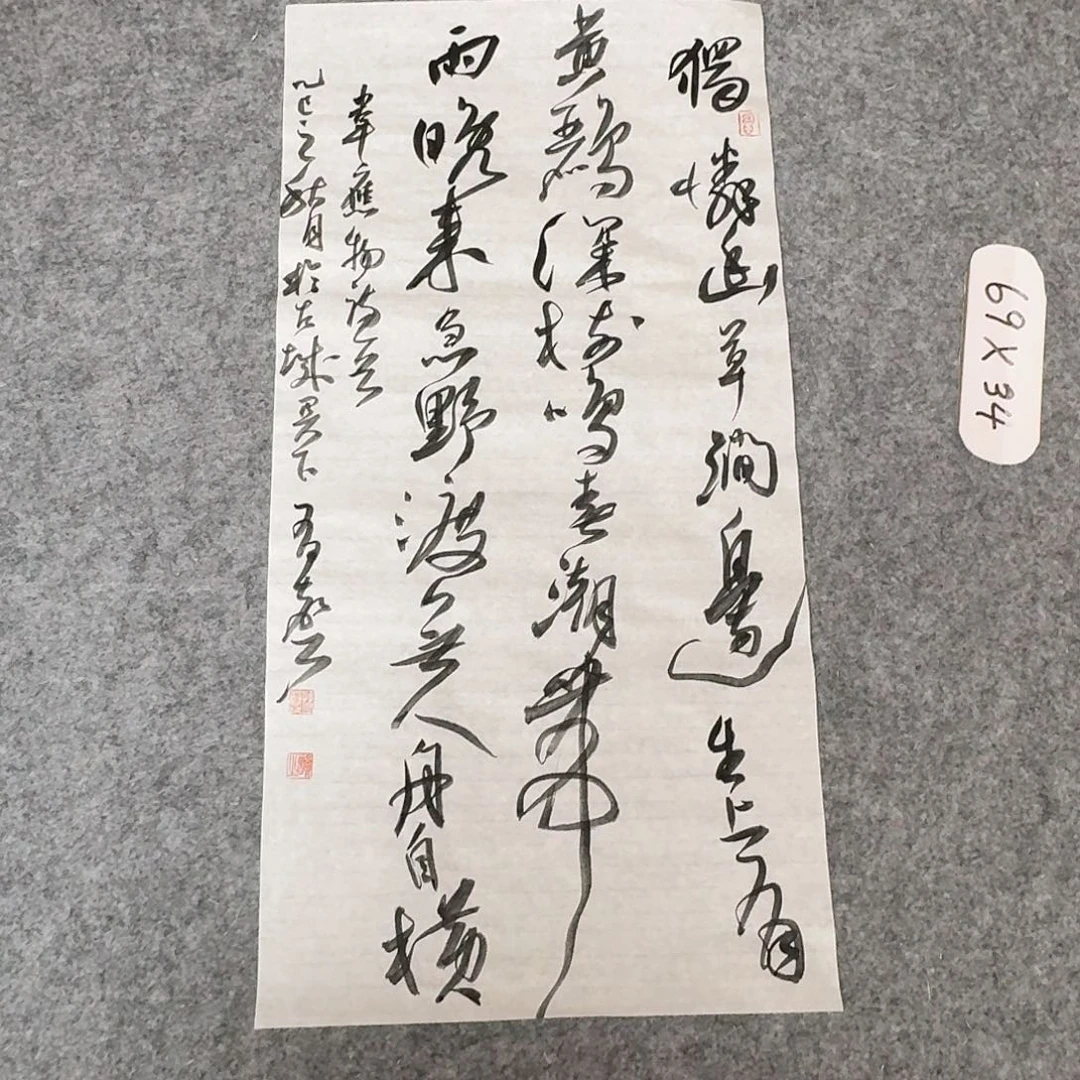 獨憐幽草澗邊生上有
黃鸝深樹鳴春潮帶
雨晚來急野渡無人舟自橫
韋應物詩
乙巳之秋月於古城吳下
69X34